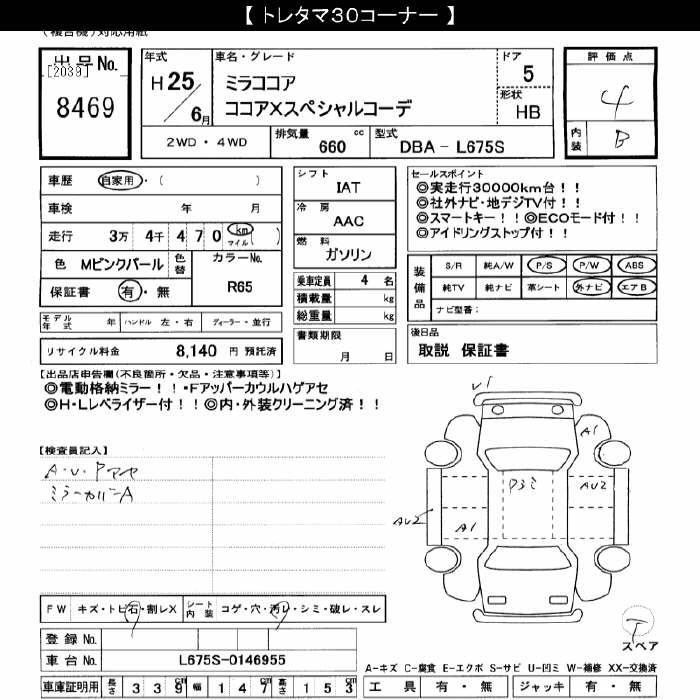 【 トレタマ30コーナー 】
(複合機)対応用紙
出品No.
[2039]
8469
年式
H 25
6月
車名・グレード
ミラココア
ココアXスペシャルコーデ
ドア
5
形状
HB
評価点
4
内装
B
2WD・4WD
排気量
660 cc
型式
DBA - L675S
車歴 自家用・( )
車検 年 月
走行 3万 4千 4 7 0 km マイル ( )
色 Mピンクパール 色替
カラーNo.
R65
保証書 有・無
モデル年式 年 ハンドル 左・右 ディーラー・並行
リサイクル料金 8,140 円 預託済
シフト
IAT
冷房
AAC
燃料
ガソリン
乗車定員 4 名
積載量 kg
総重量 kg
書類期限
月 日
セールスポイント
◎実走行30000km台!!
◎社外ナビ・地デジTV付!!
◎スマートキー!!◎ECOモード付!!
◎アイドリングストップ付!!
装備品
S/R 純A/W P/S P/W ABS
純TV 純ナビ 革シート 外ナビ エアB
ナビ型番:
後日品
取説 保証書
【出品店申告欄(不良箇所・欠品・注意事項等)】
◎電動格納ミラー!!・Fアッパーカウルハゲアセ
◎H・Lレベライザー付!!◎内・外装クリーニング済!!
【検査員記入】
A・U・Pアセ
ミラーカバーA
A1
Pヨミ
AU2
AU2
A1
FW キズ・トビ石・割レX シート内装 コゲ・穴・汚レ・シミ・破レ・スレ
登録 No.
車台 No. L675S-0146955
車庫証明用 長さ 3 3 9 cm 幅 1 4 7 cm 高さ 1 5 3 cm
T
スペア
A-キズ C-腐食 E-エクボ S-サビ U-凹ミ W-補修 XX-交換済
工具 有・無 ジャッキ 有・無